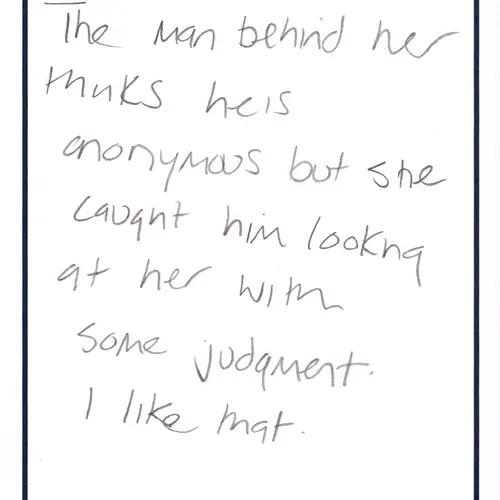 The man behind her
thinks he is
anonymous but she
caught him looking
at her with
some judgment.
I like that.